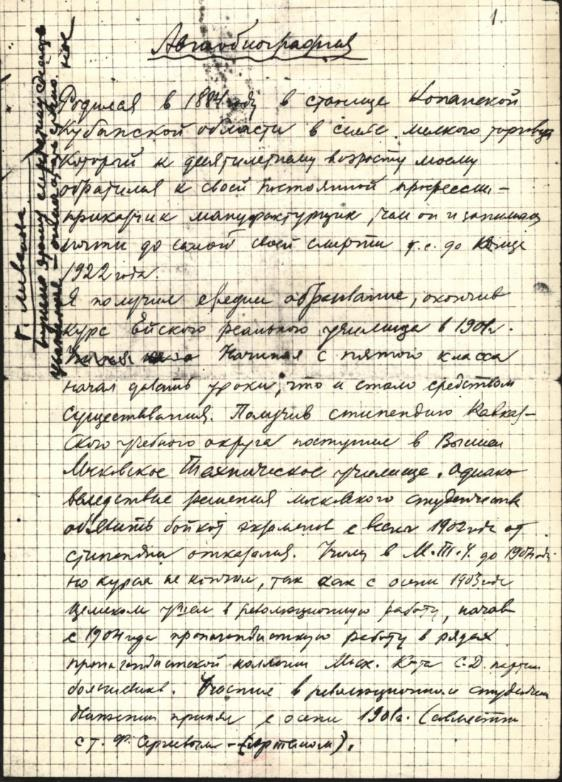 1.
Автобиография
Родился в 1884 году в станице Копанской
Кубанской области в семье мелкого торговца
который к десятилетнему возрасту моему
обратился к своей постоянной профессии –
приказчик мануфактурщик, чем он и занимался
почти до самой своей смерти т.е. до конца
1922 года
Я получил средн. образование, окончив
курс Ейского реального училища в 1901 г.
Начиная с пятого класса
начал давать уроки, что и стало средством
существования. Получив стипендию Кавказ-
ского учебного округа поступил в Высшее
Московское Техническое училище. Однако
вследствие решения московского студенчества
объявить бойкот экзаменов с весны 1902 года от
стипендии отказался. Учился в М.Т.У. до 1907 года
но курса не кончил, так как с осени 1903 года
целиком ушел в революционную работу, начав
с 1904 года пропагандистскую работу в рядах
пропагандистской коллегии Моск. К-та С.Д. партии
большевиков. Участие в революционном студенч.
движении принял с осени 1901 г. (совместно
с т. Ф. Сергеевым – (Артемом).